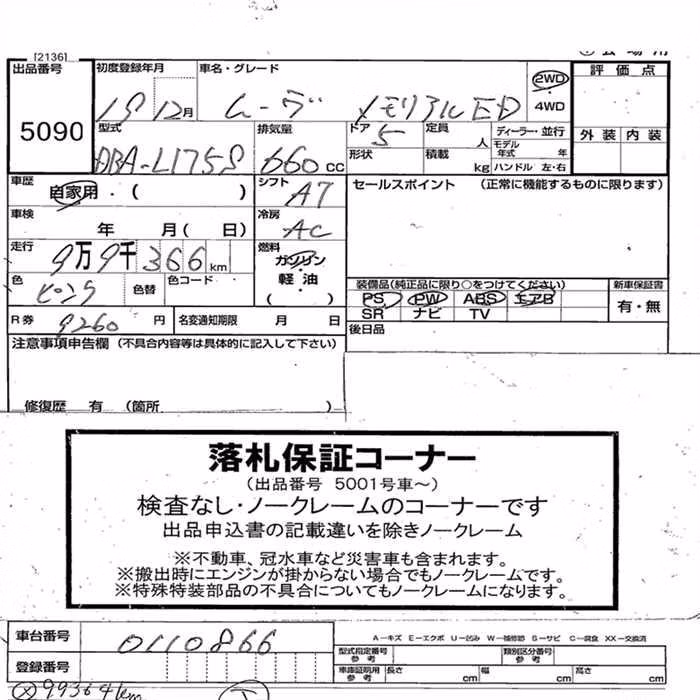 [2136]
出品番号 初度登録年月 車名・グレード 評価点
5090 18 12月 ムーヴ メモリアルED 2WD 4WD
型式 排気量 ドア 定員 ディーラー・並行 外装 内装
DBA-L175S 660 CC 5 人 モデル年式 年
形状 積載 kg ハンドル 左・右
車歴 自家用・( ) シフト AT セールスポイント (正常に機能するものに限ります)
車検 年 月( 日) 冷房 AC
走行 9万9千366km 燃料 ガソリン 軽油 ( )
色 ピンク 色替 色コード 装備品(純正品に限り○をつけてください) 新車保証書
PS PW ABS エアB 有・無
SR ナビ TV
R券 9260 円 名変通知期限 月 日 後日品
注意事項申告欄 (不具合内容等は具体的に記入して下さい)
修復歴 有 (箇所 )
落札保証コーナー
(出品番号 5001号車〜)
検査なし・ノークレームのコーナーです
出品申込書の記載違いを除きノークレーム
※不動車、冠水車など災害車も含まれます。
※搬出時にエンジンが掛からない場合でもノークレームです。
※特殊特装部品の不具合についてもノークレームになります。
車台番号 0110866 A−キズ E−エクボ U−凹み W−補修跡 S−サビ C−腐食 XX−交換済
型式指定番号 参考 類別区分番号 参考
登録番号 車庫証明用 参考 長さ cm 幅 cm 高さ cm
99364km